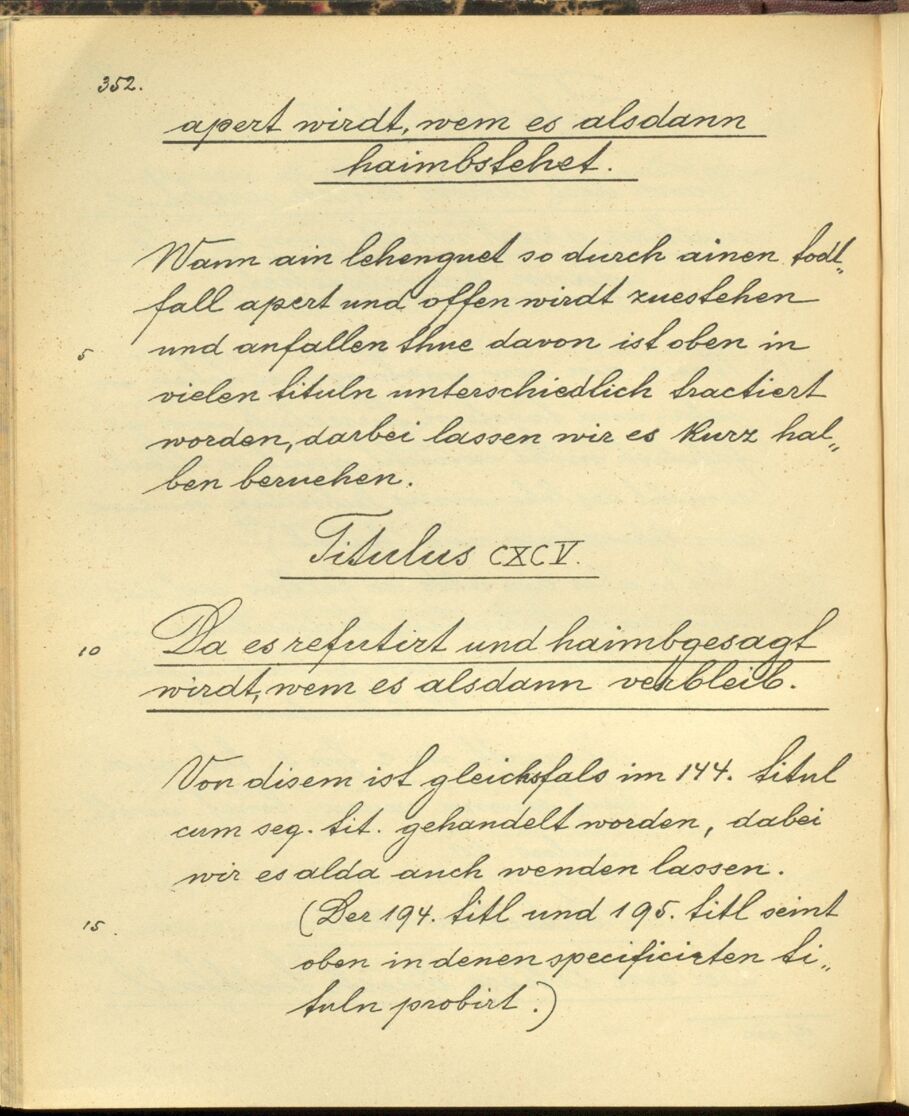 352.
apert wirdt, wem es alsdann
haimbstehet.
Wann ain lehenguet so durch ainen todt„
fall apert und offen wirdt zuestehen
5 und anfallen thue davon ist oben in
vielen tituln unterschiedlich tractiert
worden, darbei lassen wir es kurz hal„
ben beruehen.
Titulus CXCV.
10 Da es refutirt und haimbgesagt
wirdt, wem es alsdann verbleib.
Von disem ist gleichsfals im 144. titul
cum seq. tit. gehandelt worden, dabei
wir es alda auch wenden lassen.
15 (Der 194. titl und 195. titl seint
oben in denen specificirten ti„
tuln probirt.)